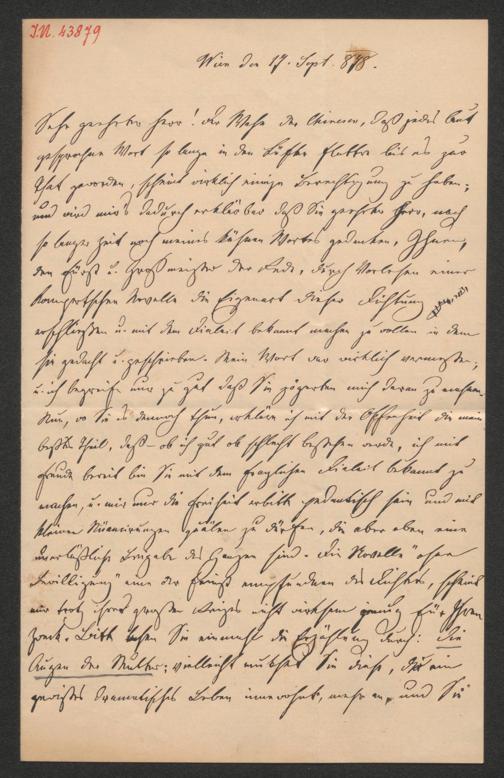 I.N. 43879
Wien den 17. Sept. 878.
Sehr geehrter Herr! Der Wahn der Chinesen, daß jedes laut
gesprochne Wort so lange in den Lüften flattre bis es zur
That geworden, scheint wirklich einige Berechtigung zu haben;
und wird mir's dadurch erklärbar daß Sie geehrter Herr, nach
so langer Zeit noch meines kühnen Wortes gedenken, Ihnen,
den Fürst u. Großmeister der Rede, durch Vorlesen einer
Kompertschen Novelle die Eigenart dieser Dichtung
erschließen u. mit dem Dialect bekannt machen zu wollen in dem
sie gedacht u. geschrieben. Mein Wort war wirklich vermessen;
u. ich begreife nur zu gut daß Sie zögerten mich daran zu mahnen.
Nun, wo Sie es dennoch thun, erkläre ich mit der Offenheit die mein
bestes Theil, daß – ob ich gut ob schlecht bestehen werde, ich mit
Freude bereit bin Sie mit dem fraglichen Dialect bekannt zu
machen, u. mir nur die Freiheit erbitte pedantisch sein und mit
kleinen Nüancirungen quälen zu dürfen, die aber eben eine
unerläßliche Beigabe des Ganzen sind. Die Novelle "ohne
Bewilligung" eine der Ernst des Dichters, scheint
mir trotz ihres großen Reizes nicht wirksam genug für Ihren
Zweck. Bitte lesen Sie einmahl die Erzählung durch: Die
Augen der Mutter; vielleicht muthet Sie diese, der ein
gewisses dramatisches Leben innewohnt, mehr an, und Sie